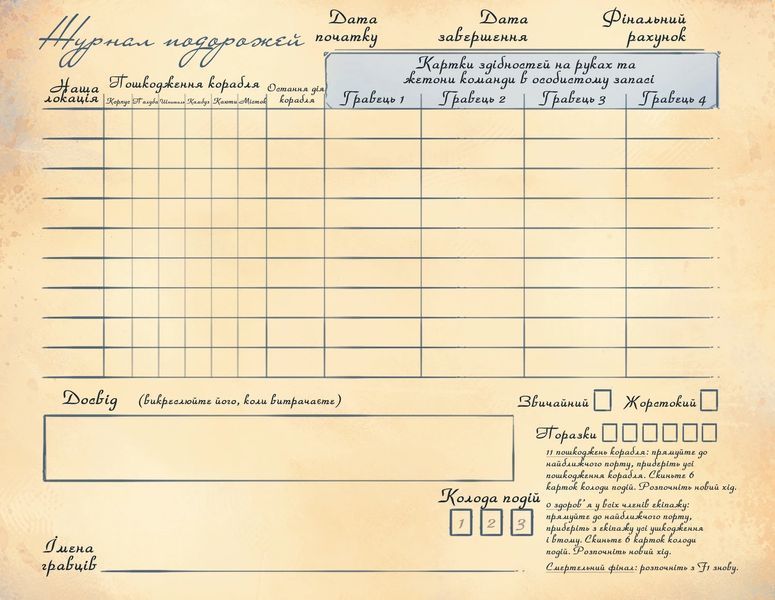 Журнал подорожей
Дата початку
Дата завершення
Фінальний рахунок
Наша локація
Пошкодження корабля
Корпус Палуба Шпиталь Камбуз Каюти Місток
Остання дія корабля
Картки здібностей на руках та
жетони команди в особистому запасі
Гравець 1 Гравець 2 Гравець 3 Гравець 4
Досвід (викреслюйте його, коли витрачаєте)
Звичайний Жорстокий
Поразки
11 пошкоджень корабля: прямуйте до
найближчого порту, приберіть усі
пошкодження корабля. Скиньте 6
карток колоди подій. Розпочніть новий хід.
0 здоров'я у всіх членів екіпажу:
прямуйте до найближчого порту,
приберіть з екіпажу усі ушкодження
і втому. Скиньте 6 карток колоди
подій. Розпочніть новий хід.
Смертельний фінал: розпочніть з F1 знову.
Колода подій
1 2 3
Імена
гравців